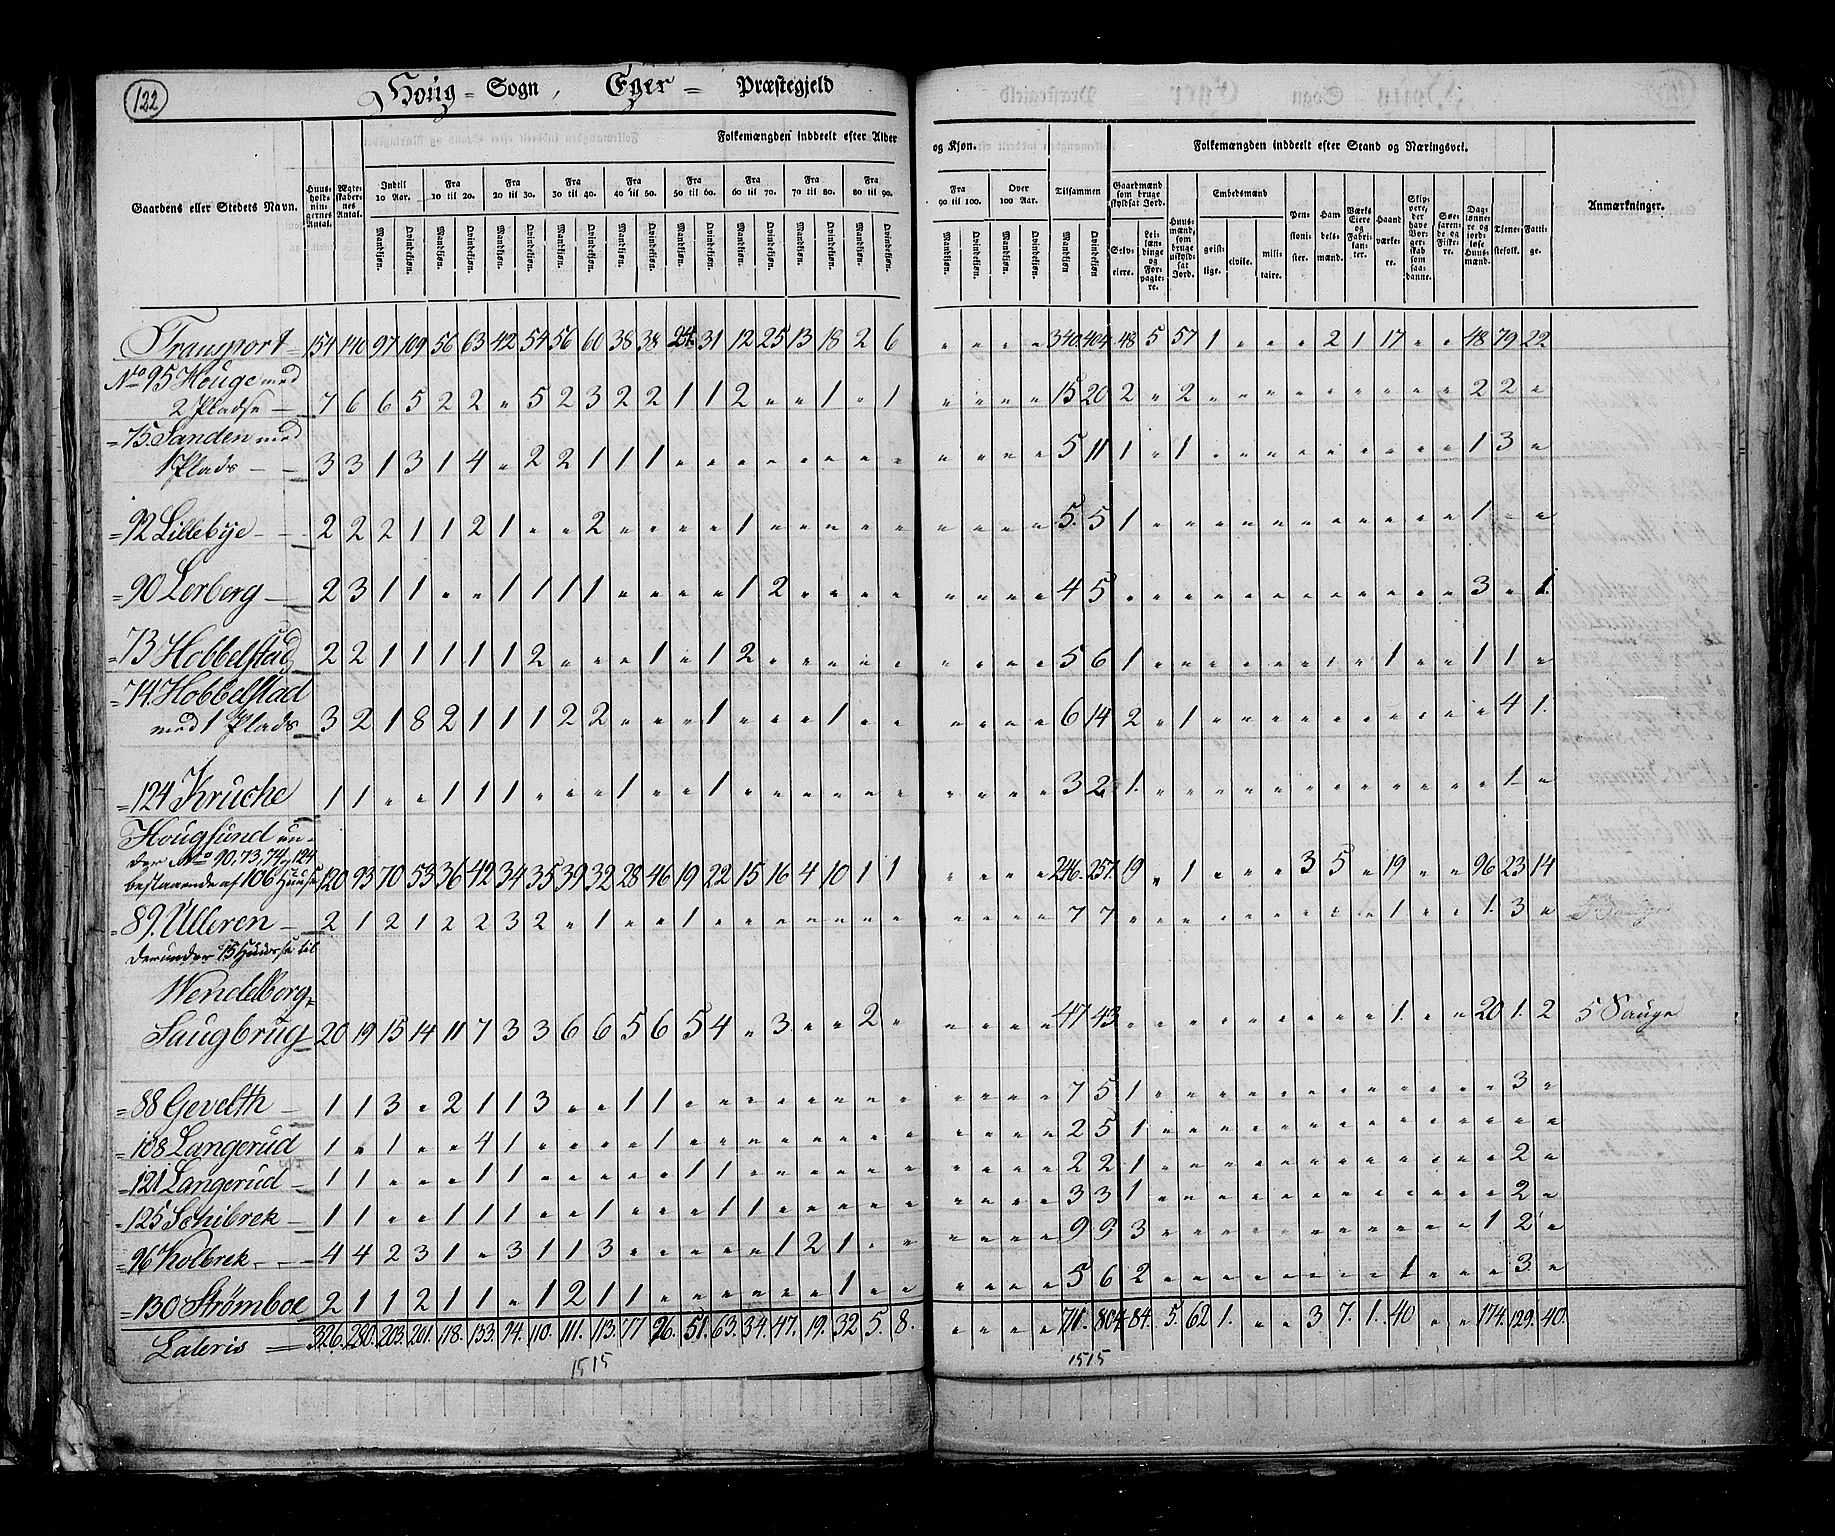 122
Houg = Sogn, Eger = Præstegjeld
Folkemængden inddeelt efter Alder og Kjøn.
Folkemængden inddeelt efter Stand og Næringsvei.
Gaardens eller Stedets Navn.
Huus-holdnin-gernes Antal.
Ægte-skaber-nes Antal.
Indtil 10 Aar.
Fra 10 til 20.
Fra 20 til 30.
Fra 30 til 40.
Fra 40 til 50.
Fra 50 til 60.
Fra 60 til 70.
Fra 70 til 80.
Fra 80 til 90.
Fra 90 til 100.
Over 100 Aar.
Tilsammen
Mandkjøn. Qvindekjøn.
Gaardmænd som bruge skyldsat Jord.
Selv-eiere.
Lei-læn-dinge og For-pagte-re.
Huus-mænd, som bruge uskyld-sat Jord.
Embedsmænd
geist-lige.
civile.
mili-taire.
Pen-sioni-ster.
Han-dels-mænd.
Værks Eiere og Fabri-kan-ter.
Haand-værke-re.
Skip-pere, der have Bor-ger-skab som saa-danne.
Søe-farende og Fiske-re.
Dag-lønne-re og jord-løse Huus-mænd.
Tjene-stefolk.
Fatti-ge.
Anmærkninger.
Transport = 154 140 97 109 56 63 42 54 56 60 38 38 24 31 12 25 13 18 2 6 " " " " 340 404 48 5 57 1 " " " 2 1 17 " " 48 79 22
No 95 Houge med
2 Pladse — 7 6 6 5 2 2 " 5 2 3 2 2 1 1 2 " " 1 " 1 " " " " 15 20 2 " 2 " " " " " " " " " 2 2 "
= 75. Sanden med
1 Plads — 3 3 1 3 1 4 " 2 2 1 1 1 " " " " " " " " " " " " 5 11 1 " 1 " " " " " " " " " 1 3 "
= 92 Lillebye — 2 2 2 1 1 2 1 " " 2 " " " " 1 " " " " " " " " " 5 5 1 " " " " " " " " " " " 1 " "
= 90 Lerberg — 2 3 1 1 " " 1 1 1 1 " " " " 1 2 " " " " " " " " 4 5 " " " " " " " " " " " " 3 " 1
= 73 Hobbelstad 2 2 1 1 1 1 1 2 " " " 1 " 1 2 " " " " " " " " " 5 6 1 " " " " " " " " 1 " " 1 1 "
= 74. Hobbelstad
med 1 Plads 3 2 1 8 2 1 1 1 2 2 " " " 1 " " " 1 " " " " " " 6 14 2 " 1 " " " " " " " " " " 4 1
= 124 Kruche 1 1 " " 1 1 1 " " " 1 " " 1 " " " " " " " " " " 3 2 1 " " " " " " " " " " " " 1 "
Hougsund un-
der No 90, 73, 74 og 124
bestaaende af 106 Huuse 120 93 70 53 36 42 34 35 39 32 28 46 19 22 15 16 4 10 1 1 " " " " 246 257 19 " 1 " " " 3 5 " 19 " " 96 23 14
= 89. Ulleren — 2 1 2 1 2 2 3 2 " 1 " " 1 " " " " " " " " " " " 7 7 " " " " " " " " " 1 " " 1 3 "
derunder 15 Huuse til
Wendelborg =
Saugbrug 20 19 15 14 11 7 3 3 6 6 5 6 5 4 " 3 " " 2 " " " " " 47 43 " " " " " " " " " 1 " " 20 1 2 5 Sauge
= 88 Gevelth — 1 1 3 " 2 1 1 3 " " 1 1 " " " " " " " " " " " " 7 5 1 " " " " " " " " " " " " 3 "
= 108 Langerud 1 " 1 " " 4 1 " " " " 1 " " " " " " " " " " " " 2 5 1 " " " " " " " " " " " " " "
= 121 Langerud — 1 1 " " " 1 1 " " " " " 1 1 " " " " " " " " " " 2 2 1 " " " " " " " " " " " " 2 "
= 125 Schibrek — 1 1 " " 1 1 1 " " 1 " " " 1 1 " " " " " " " " " 3 3 1 " " " " " " " " " " " " 2 "
= 96 Kolbrek — 4 4 2 3 1 " 3 1 1 3 " " " " " 1 2 1 " " " " " " 9 9 3 " " " " " " " " " " " 1 2 "
= 130 Strømboe 2 1 1 2 1 1 " 1 2 1 1 " " " " " " 1 " " " " " " 5 6 2 " " " " " " " " 1 " " " 3 "
Lateris = 326. 280. 203. 201. 118. 133. 94. 110. 111. 113. 77 96. 51. 63. 34. 47. 19. 32. 5. 8. " " " " 711. 804. 84. 5. 62 1. " " 3 7. 1. 40 " " 174. 129. 40.
1515
1515